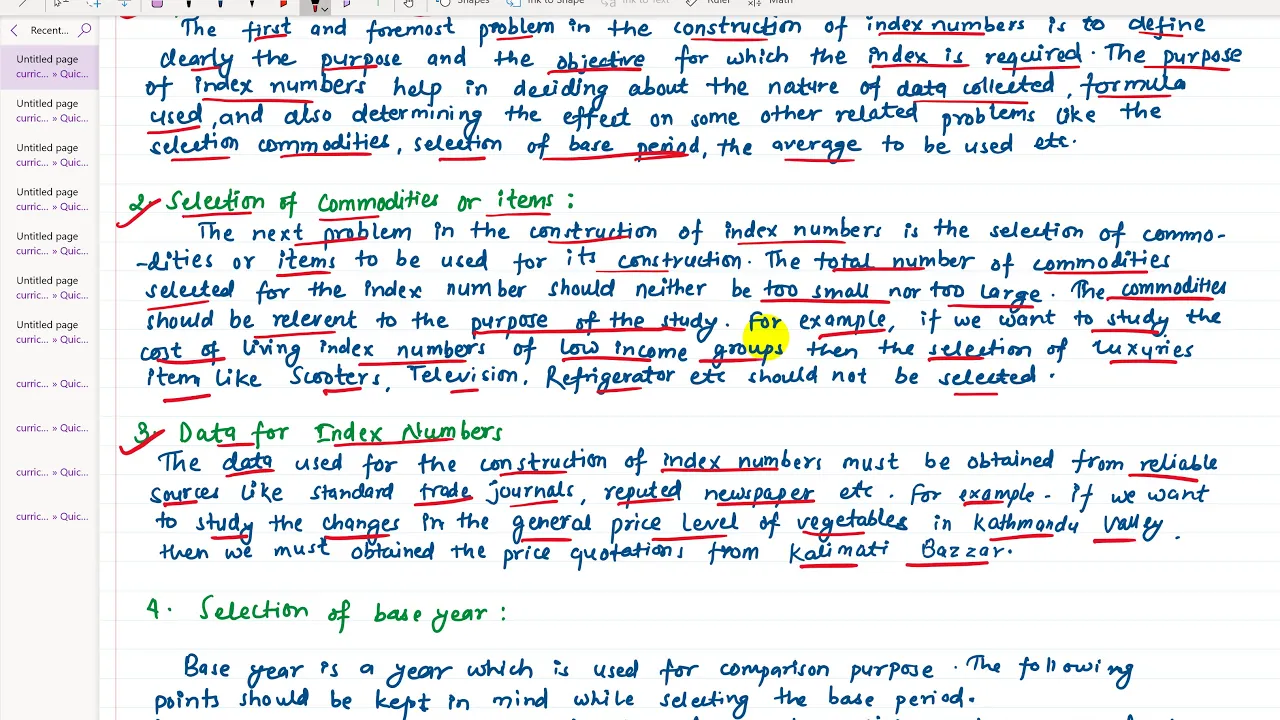 Shapes Ink to Shape Ink to Text Ruler Math
Recent...
Untitled page
curric... » Quic...
Untitled page
curric... » Quic...
Untitled page
curric... » Quic...
Untitled page
curric... » Quic...
Untitled page
curric... » Quic...
Untitled page
curric... » Quic...
Untitled page
curric... » Quic...
curric... » Quic...
curric... » Quic...
curric... » Quic...
curric... » Quic...
The first and foremost problem in the construction of index numbers is to define
clearly the purpose and the objective for which the index is required. The purpose
of index numbers help in deciding about the nature of data collected, formula
used, and also determining the effect on some other related problems like the
selection commodities, selection of base period, the average to be used etc.
2. Selection of commodities or items :
The next problem in the construction of index numbers is the selection of commo-
-dities or items to be used for its construction. The total number of commodities
selected for the index number should neither be too small nor too large. The commodities
should be relevent to the purpose of the study. For example, if we want to study the
cost of living index numbers of low income groups then the selection of luxuries
item like Scooters, Television, Refrigerator etc should not be selected.
3. Data for Index Numbers
The data used for the construction of index numbers must be obtained from reliable
sources like standard trade journals, reputed newspaper etc. For example - if we want
to study the changes in the general price level of vegetables in Kathmandu Valley.
then we must obtained the price quotations from Kalimati Bazzar.
4. Selection of base year :
Base year is a year which is used for comparison purpose. The following
points should be kept in mind while selecting the base period.